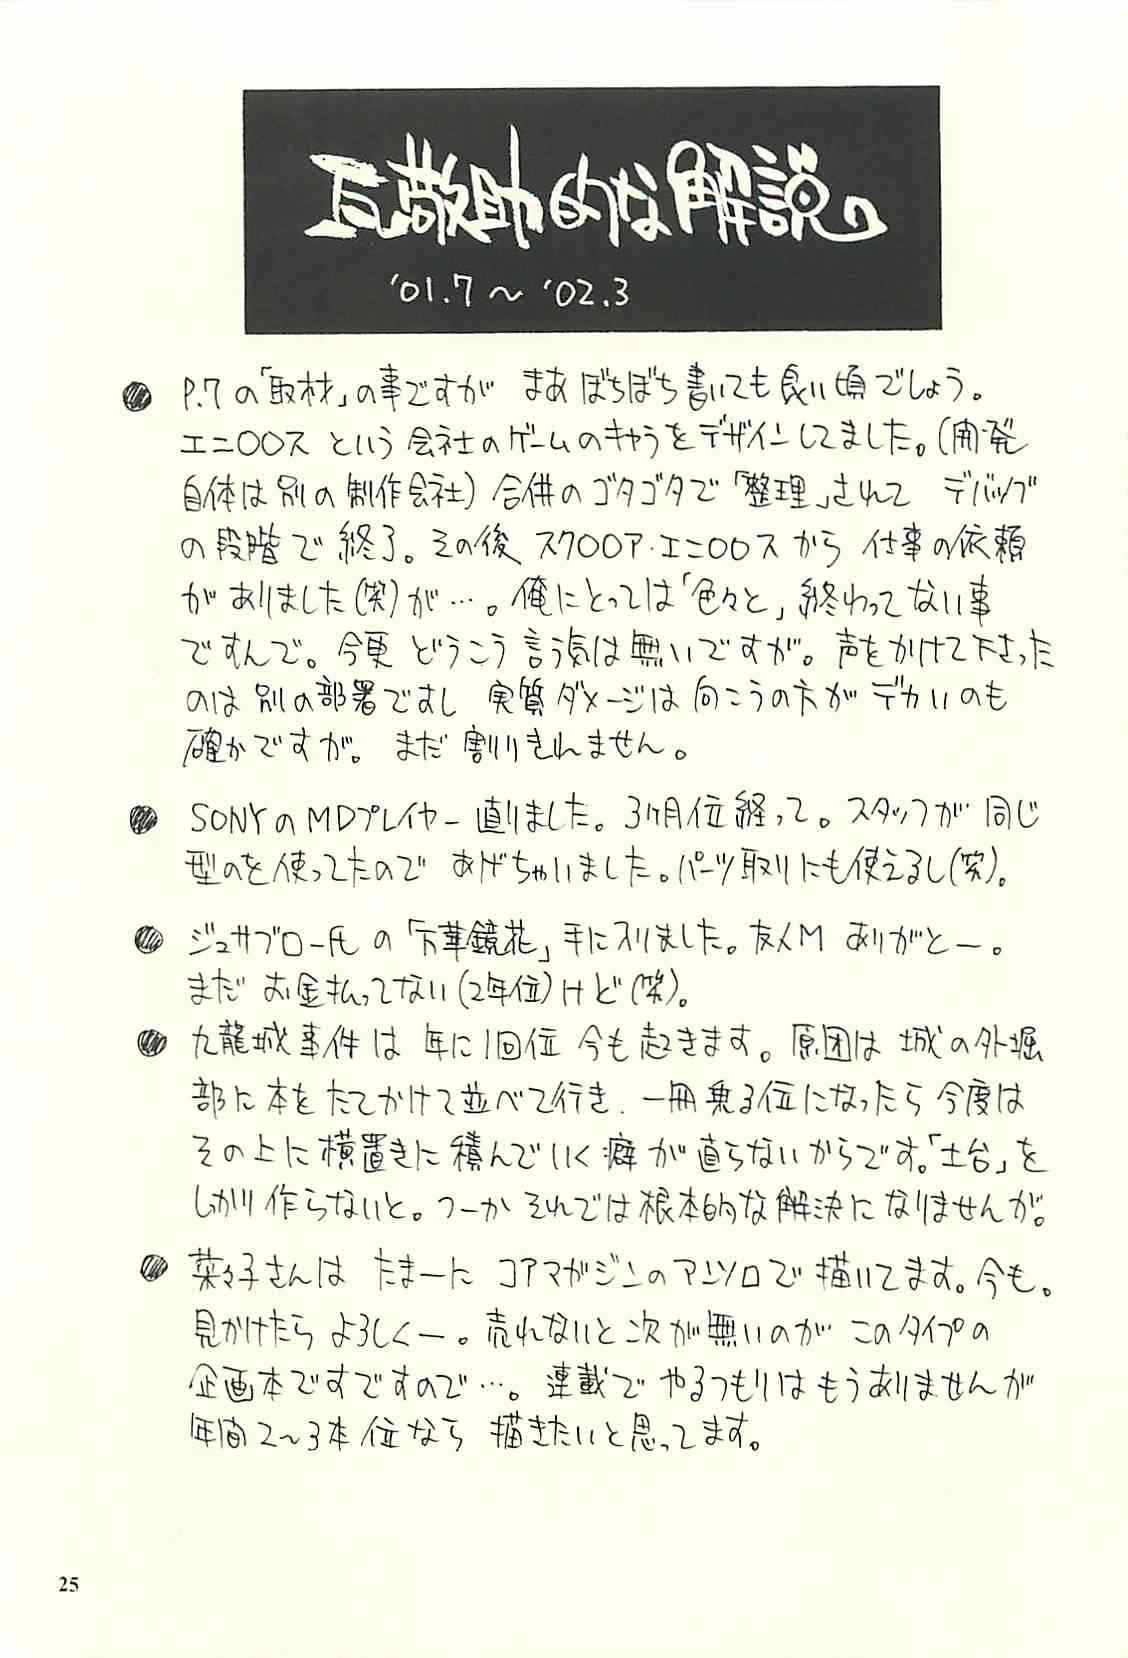 瓦敬助的な解説
'01.7～'02.3
P.7の「取材」の事ですが まあぼちぼち書いても良い頃でしょう。
エニ〇〇スという会社のゲームのキャラをデザインしてました。(開発
自体は別の制作会社)合併のゴタゴタで「整理」されて デバッグ
の段階で終了。その後スク〇〇ア・エニ〇〇スから仕事の依頼
がありました(笑)が…。俺にとっては「色々と」終わってない事
ですんで。今更どうこう言う気は無いですが。声をかけて下さった
のは別の部署ですし 実質ダメージは向こうの方がデカいのも
確かですが。まだ割りきれません。
SONYのMDプレイヤー直りました。3ヶ月位経って。スタッフが同じ
型のを使ってたので あげちゃいました。パーツ取りにも使えるし(笑)。
ジュサブロー氏の「万華鏡花」手に入りました。友人M ありがとー。
まだお金払ってない(2年位)けど(笑)。
九龍城事件は年に1回位今も起きます。原因は城の外堀
部に本をたてかけて並べて行き、一冊乗る位になったら今度は
その上に横置きに積んでいく癖が直らないからです。「土台」を
しっかり作らないと。つーかそれでは根本的な解決になりませんが。
菜々子さんは たまーに コアマガジンのアンソロで描いてます。今も。
見かけたらよろしくー。売れないと次が無いのが このタイプの
企画本ですですので…。連載でやるつもりはもうありませんが
年間2～3本位なら 描きたいと思ってます。
25